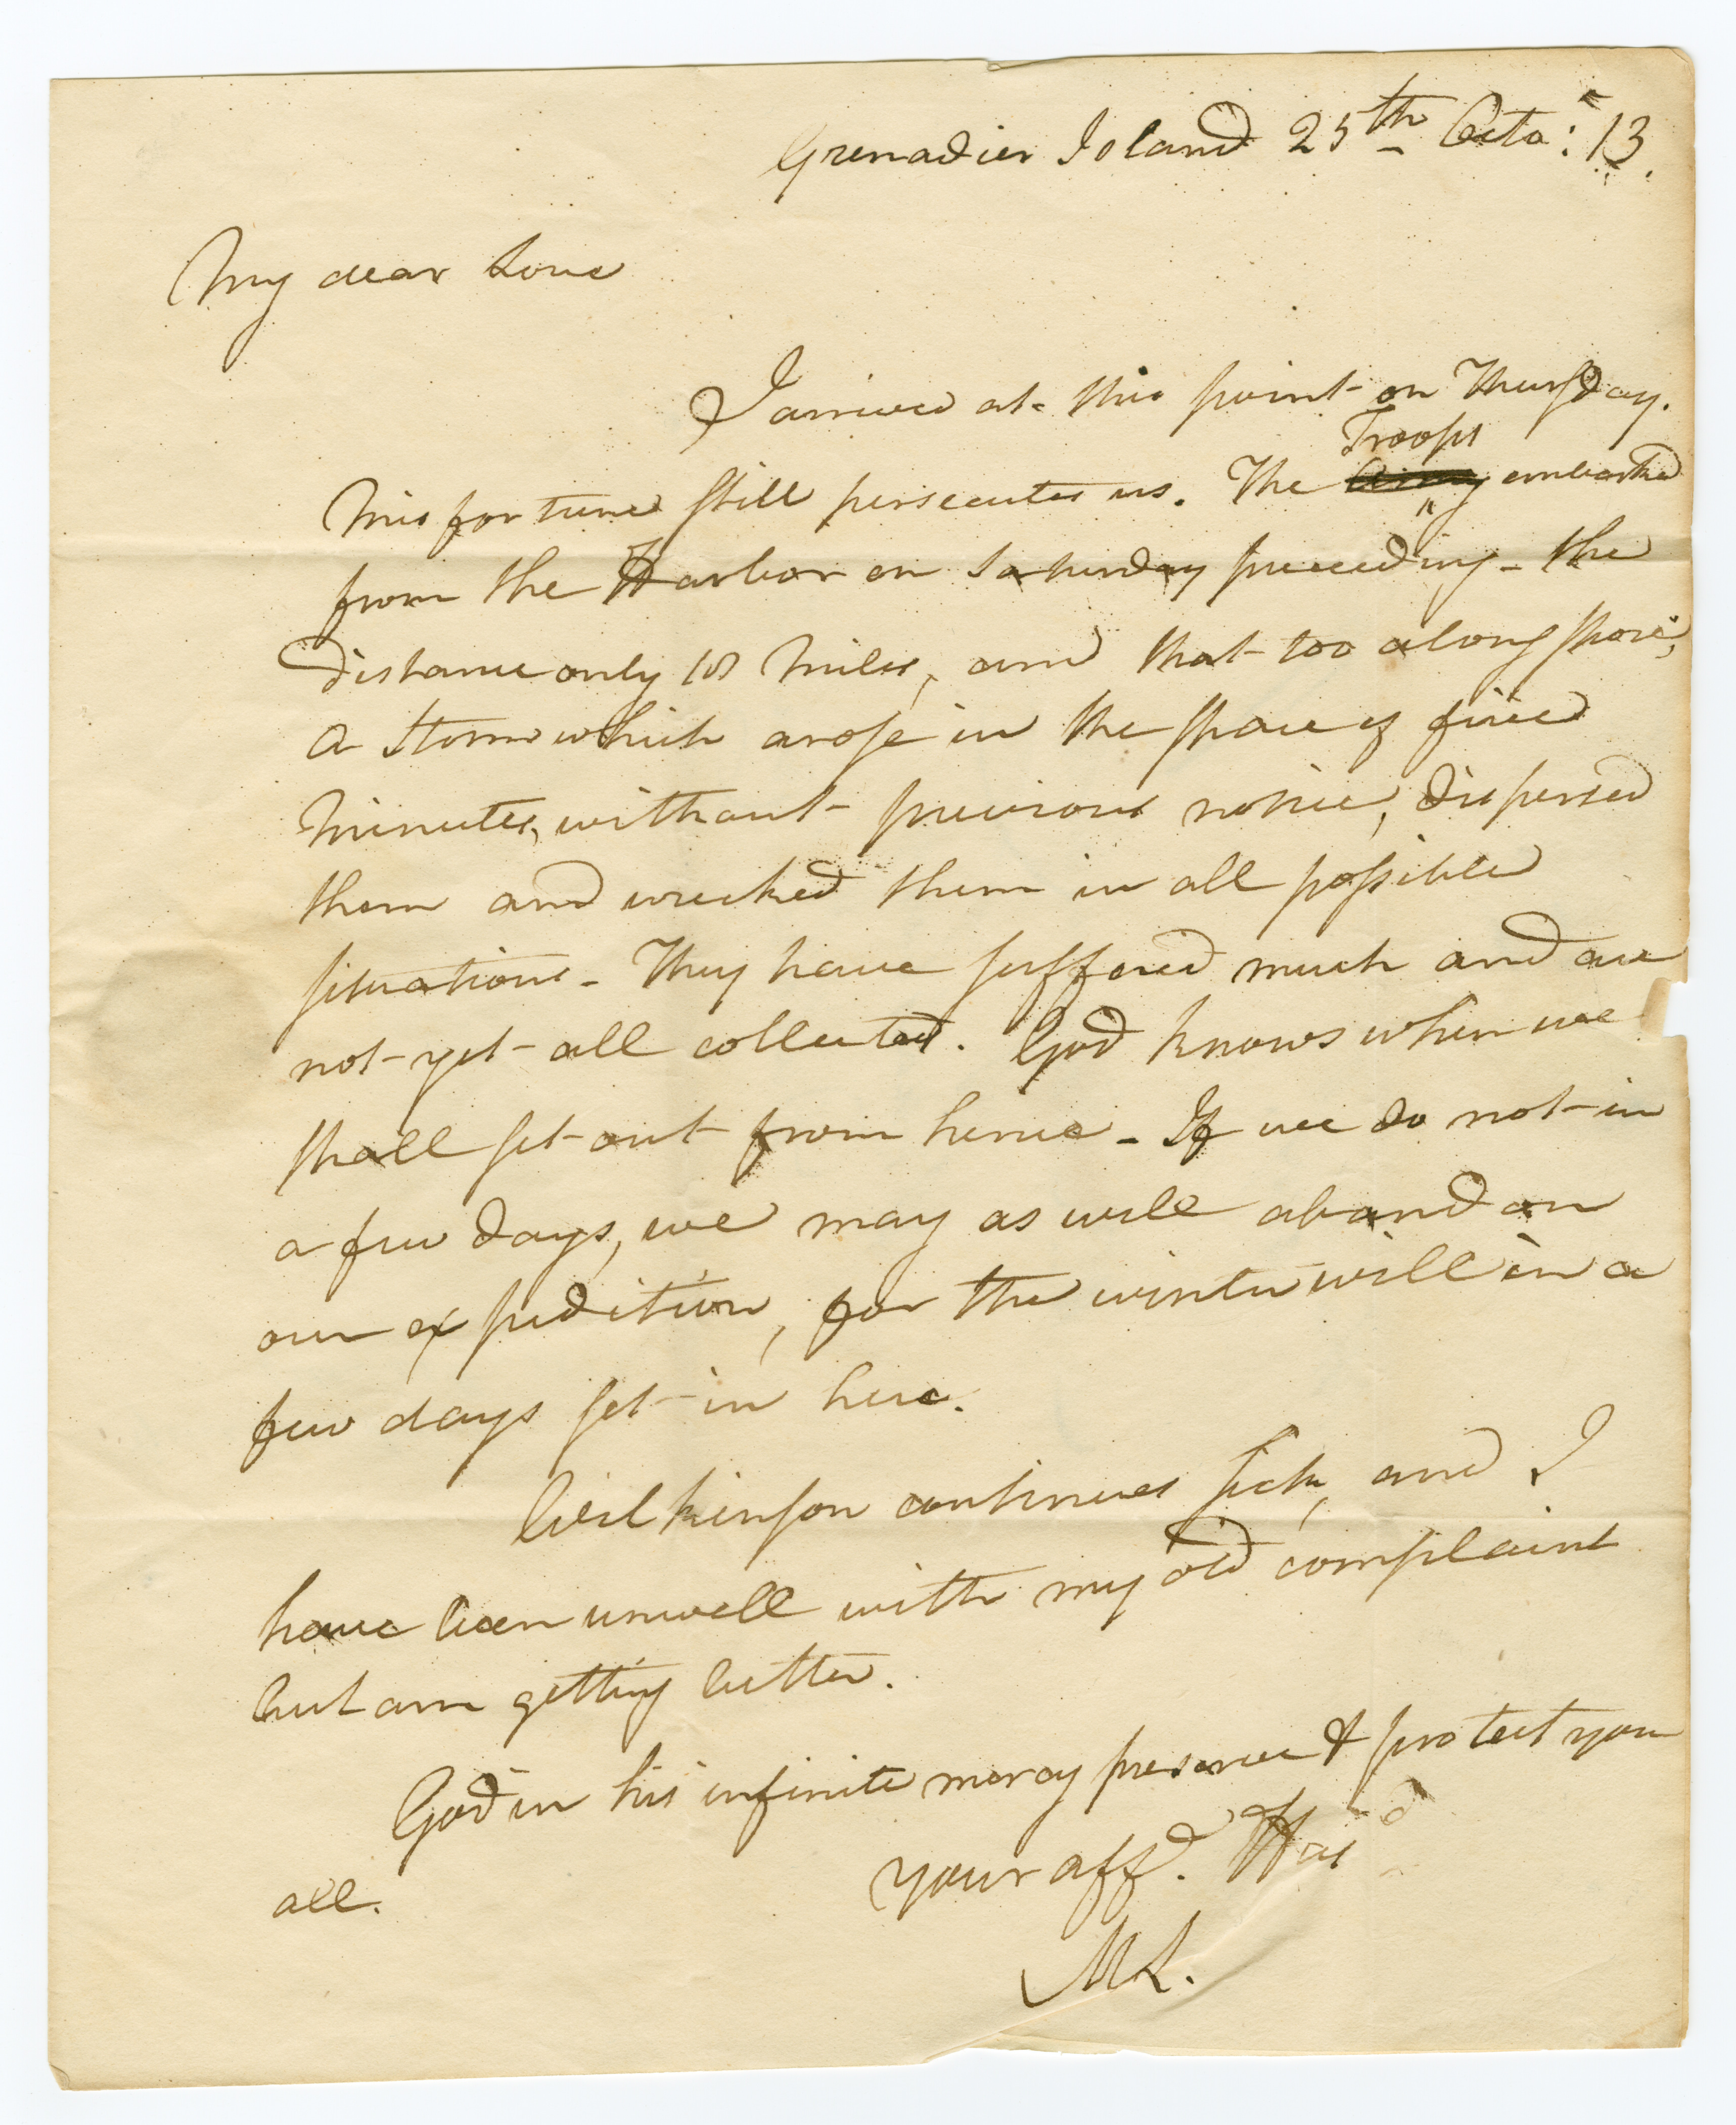 Grenadier Island 25th Octo: 13.
My dear Love
I arrived at this point on Thursday.
Troops
Misfortune still persecutes us. The Army embarked
from the Harbor on Saturday preceding - the
distance only 18 Miles, and that too along shore,
a Storm which arose in the space of five
Minutes, without previous notice, dispersed
them and wrecked them in all possible
situations - They have suffered much and are
not yet all collected. God knows when we
shall set out from hence - If we do not in
a few days, we may as well abandon
our expedition, for the winter will in a
few days set in here.
Wilkinson continues sick, and I
have been unwell with my old complaint
but am getting better.
God in his infinite mercy preserve & protect you
all.
your affd. Husd
ML.